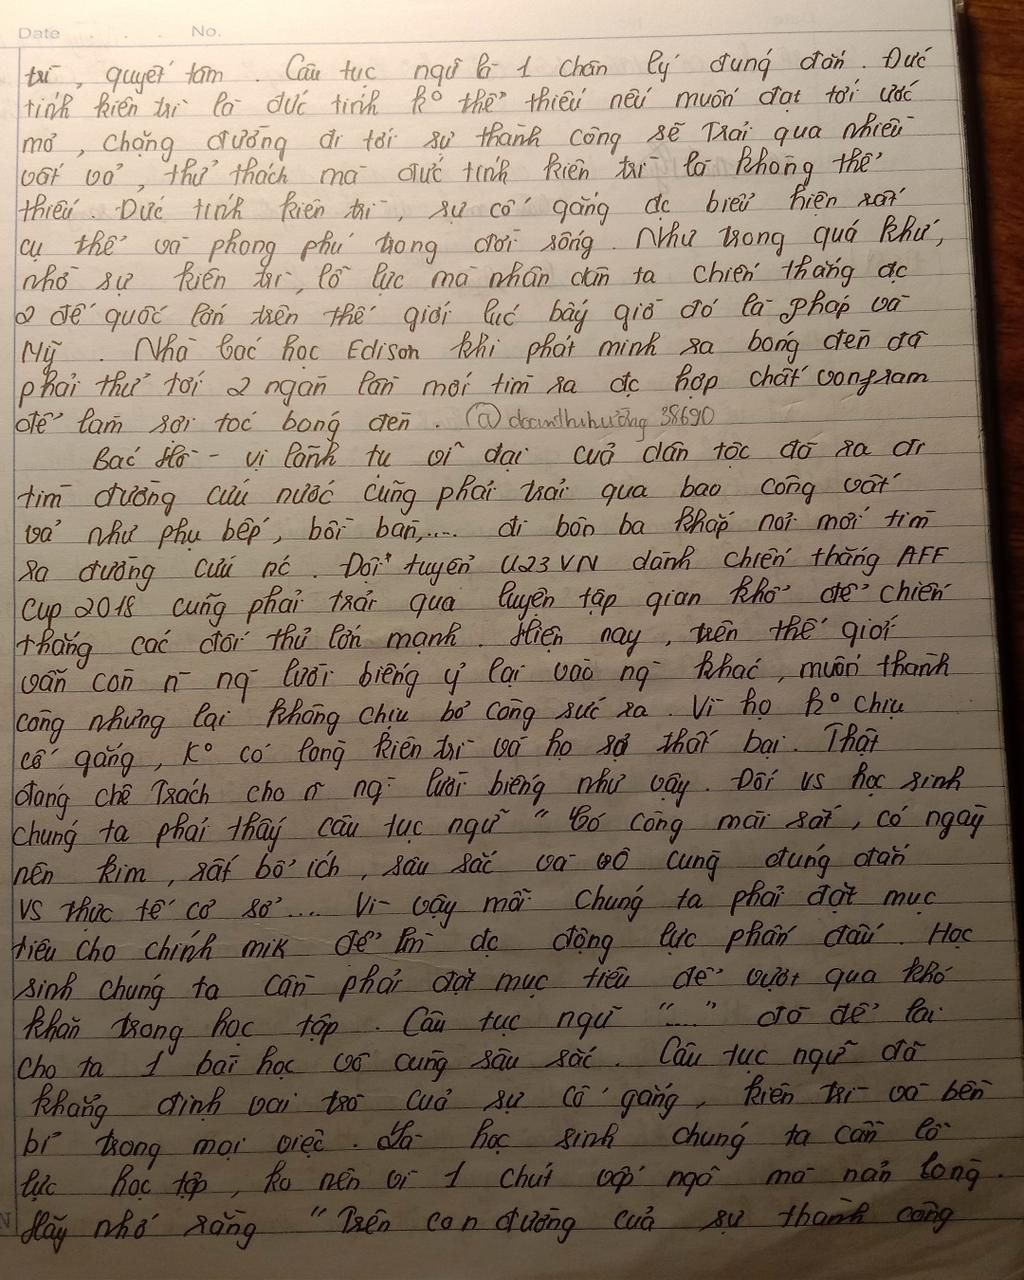 Date . . . No.
trì, quyết tâm. Câu tục ngữ là 1 chân lý đúng đắn. Đức
tính kiên trì là đức tính k° thể thiếu nếu muốn đạt tới ước
mơ, chặng đường đi tới sự thành công sẽ Trải qua nhiều
vất vả, thử thách mà đức tính kiên trì là không thể
thiếu. Đức tính kiên trì, sự cố gắng đc biểu hiện rất
cụ thể và phong phú trong đời sống. Như trong quá khứ,
nhờ sự kiên trì, lỗ lực mà nhân dân ta chiến thắng đc
2 đế quốc lớn trên thế giới lúc bấy giờ đó là Pháp và
Mỹ. Nhà bác học Edison khi phát minh ra bóng đèn đã
phải thử tới 2 ngàn lần mới tìm ra đc hợp chất vongram
để làm sợi tóc bóng đèn. @doanthihuong 38690
Bác Hồ - vị lãnh tụ vĩ đại của dân tộc đã ra đi
tìm đường cứu nước cũng phải trải qua bao công vất
vả như phụ bếp, bồi bàn,.... đi bôn ba khắp nơi mới tìm
ra đường cứu nc. Đội tuyển U23 VN dành chiến thắng AFF
Cup 2018 cũng phải trải qua luyện tập gian khổ để chiến
thắng các đối thủ lớn mạnh. Hiện nay, trên thế giới
vẫn còn n~ ng` lười biếng ỷ lại vào ng` khác, muốn thành
công nhưng lại không chịu bỏ công sức ra. Vì họ k° chịu
cố gắng, K° có lòng kiên trì và họ sợ thất bại. Thật
đáng chê Trách cho n~ ng` lười biếng như vậy. Đối vs học sinh
chúng ta phải thấy câu tục ngữ " Có công mài sắt, có ngày
nên kim, rất bổ ích, sâu sắc và vô cùng đúng đắn
vs thực tế cơ sở.... Vì vậy mỗi chúng ta phải đặt mục
tiêu cho chính mik để lm đc động lực phấn đấu. Học
sinh chúng ta cần phải đặt mục tiêu để vượt qua khó
khăn trong học tập. Câu tục ngữ "....." đã để lại
cho ta 1 bài học vô cùng sâu sắc. Câu tục ngữ đã
khẳng định vai trò của sự cố gắng, kiên trì và bền
bỉ trong mọi việc. Là học sinh chúng ta cần lỗ
lực học tập, ko nên vì 1 chút vấp ngã mà nản lòng.
Hãy nhớ rằng "Trên con đường của sự thành công